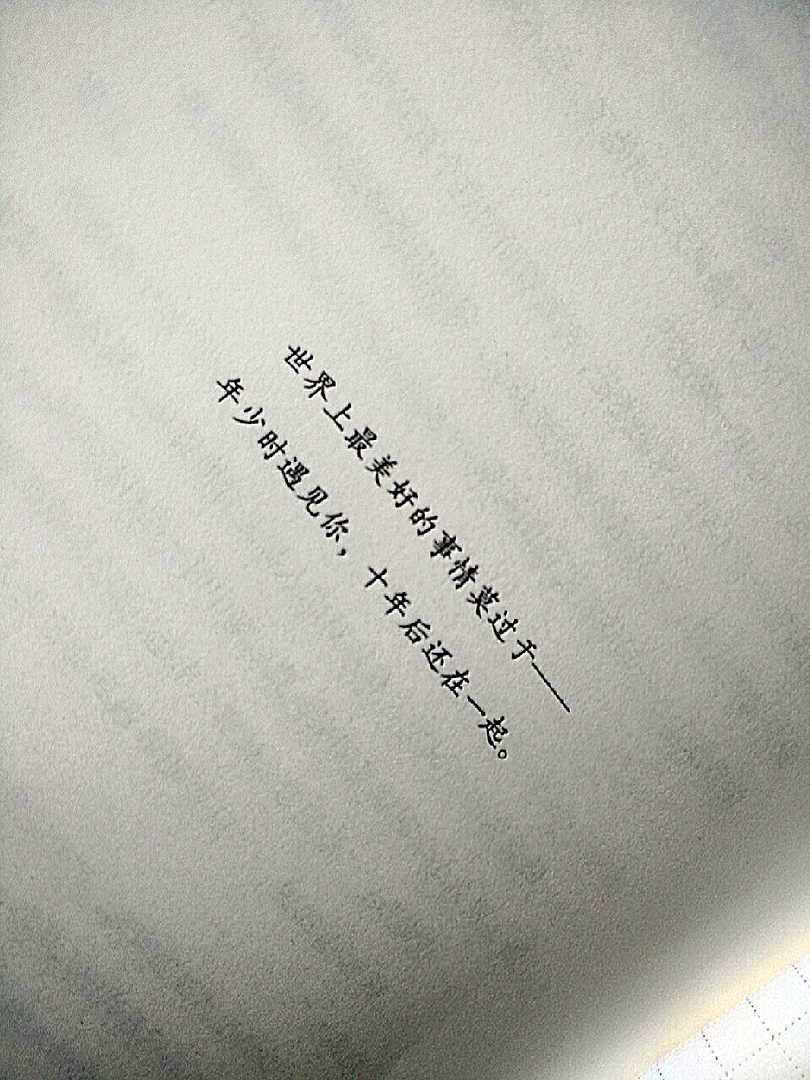 世界上最美好的事情莫过于——
年少时遇见你，十年后还在一起。